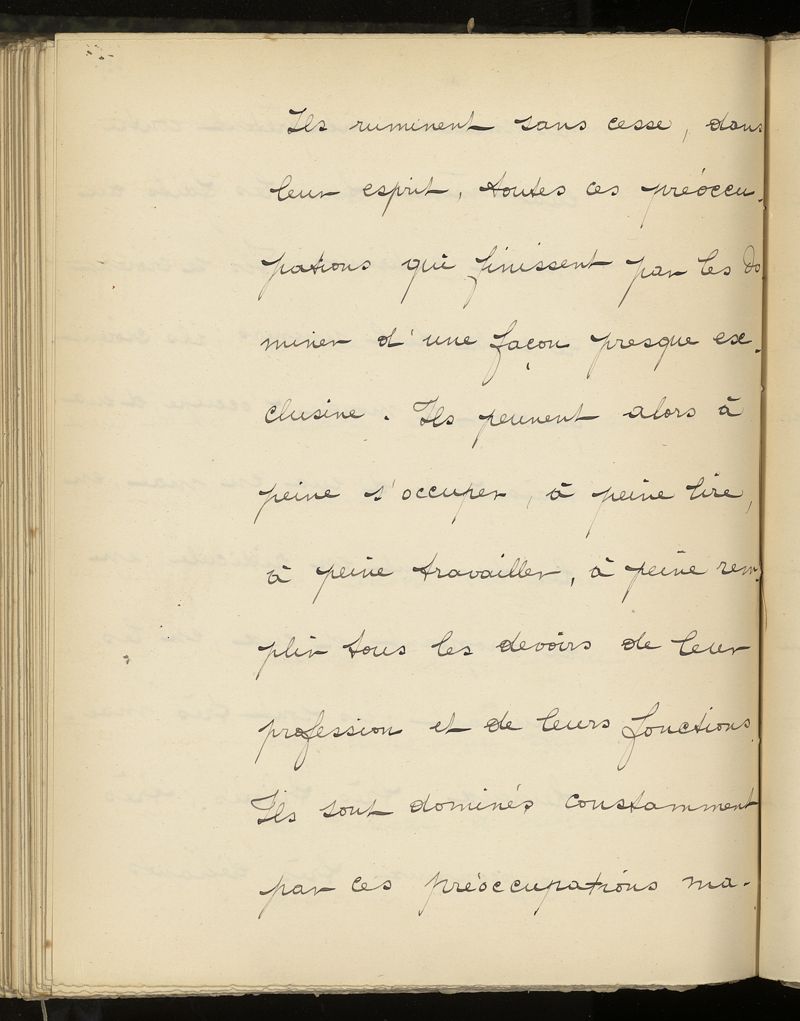 Ils ruminent sans cesse, dans
leur esprit, toutes ces préoccu-
pations qui finissent par les do
miner d'une façon presque ex-
clusive. Ils peuvent alors à
peine s'occuper, à peine lire,
à peine travailler, à peine rem-
plir tous les devoirs de leur
profession et de leurs fonctions.
Ils sont dominés constamment
par ces préoccupations ma-